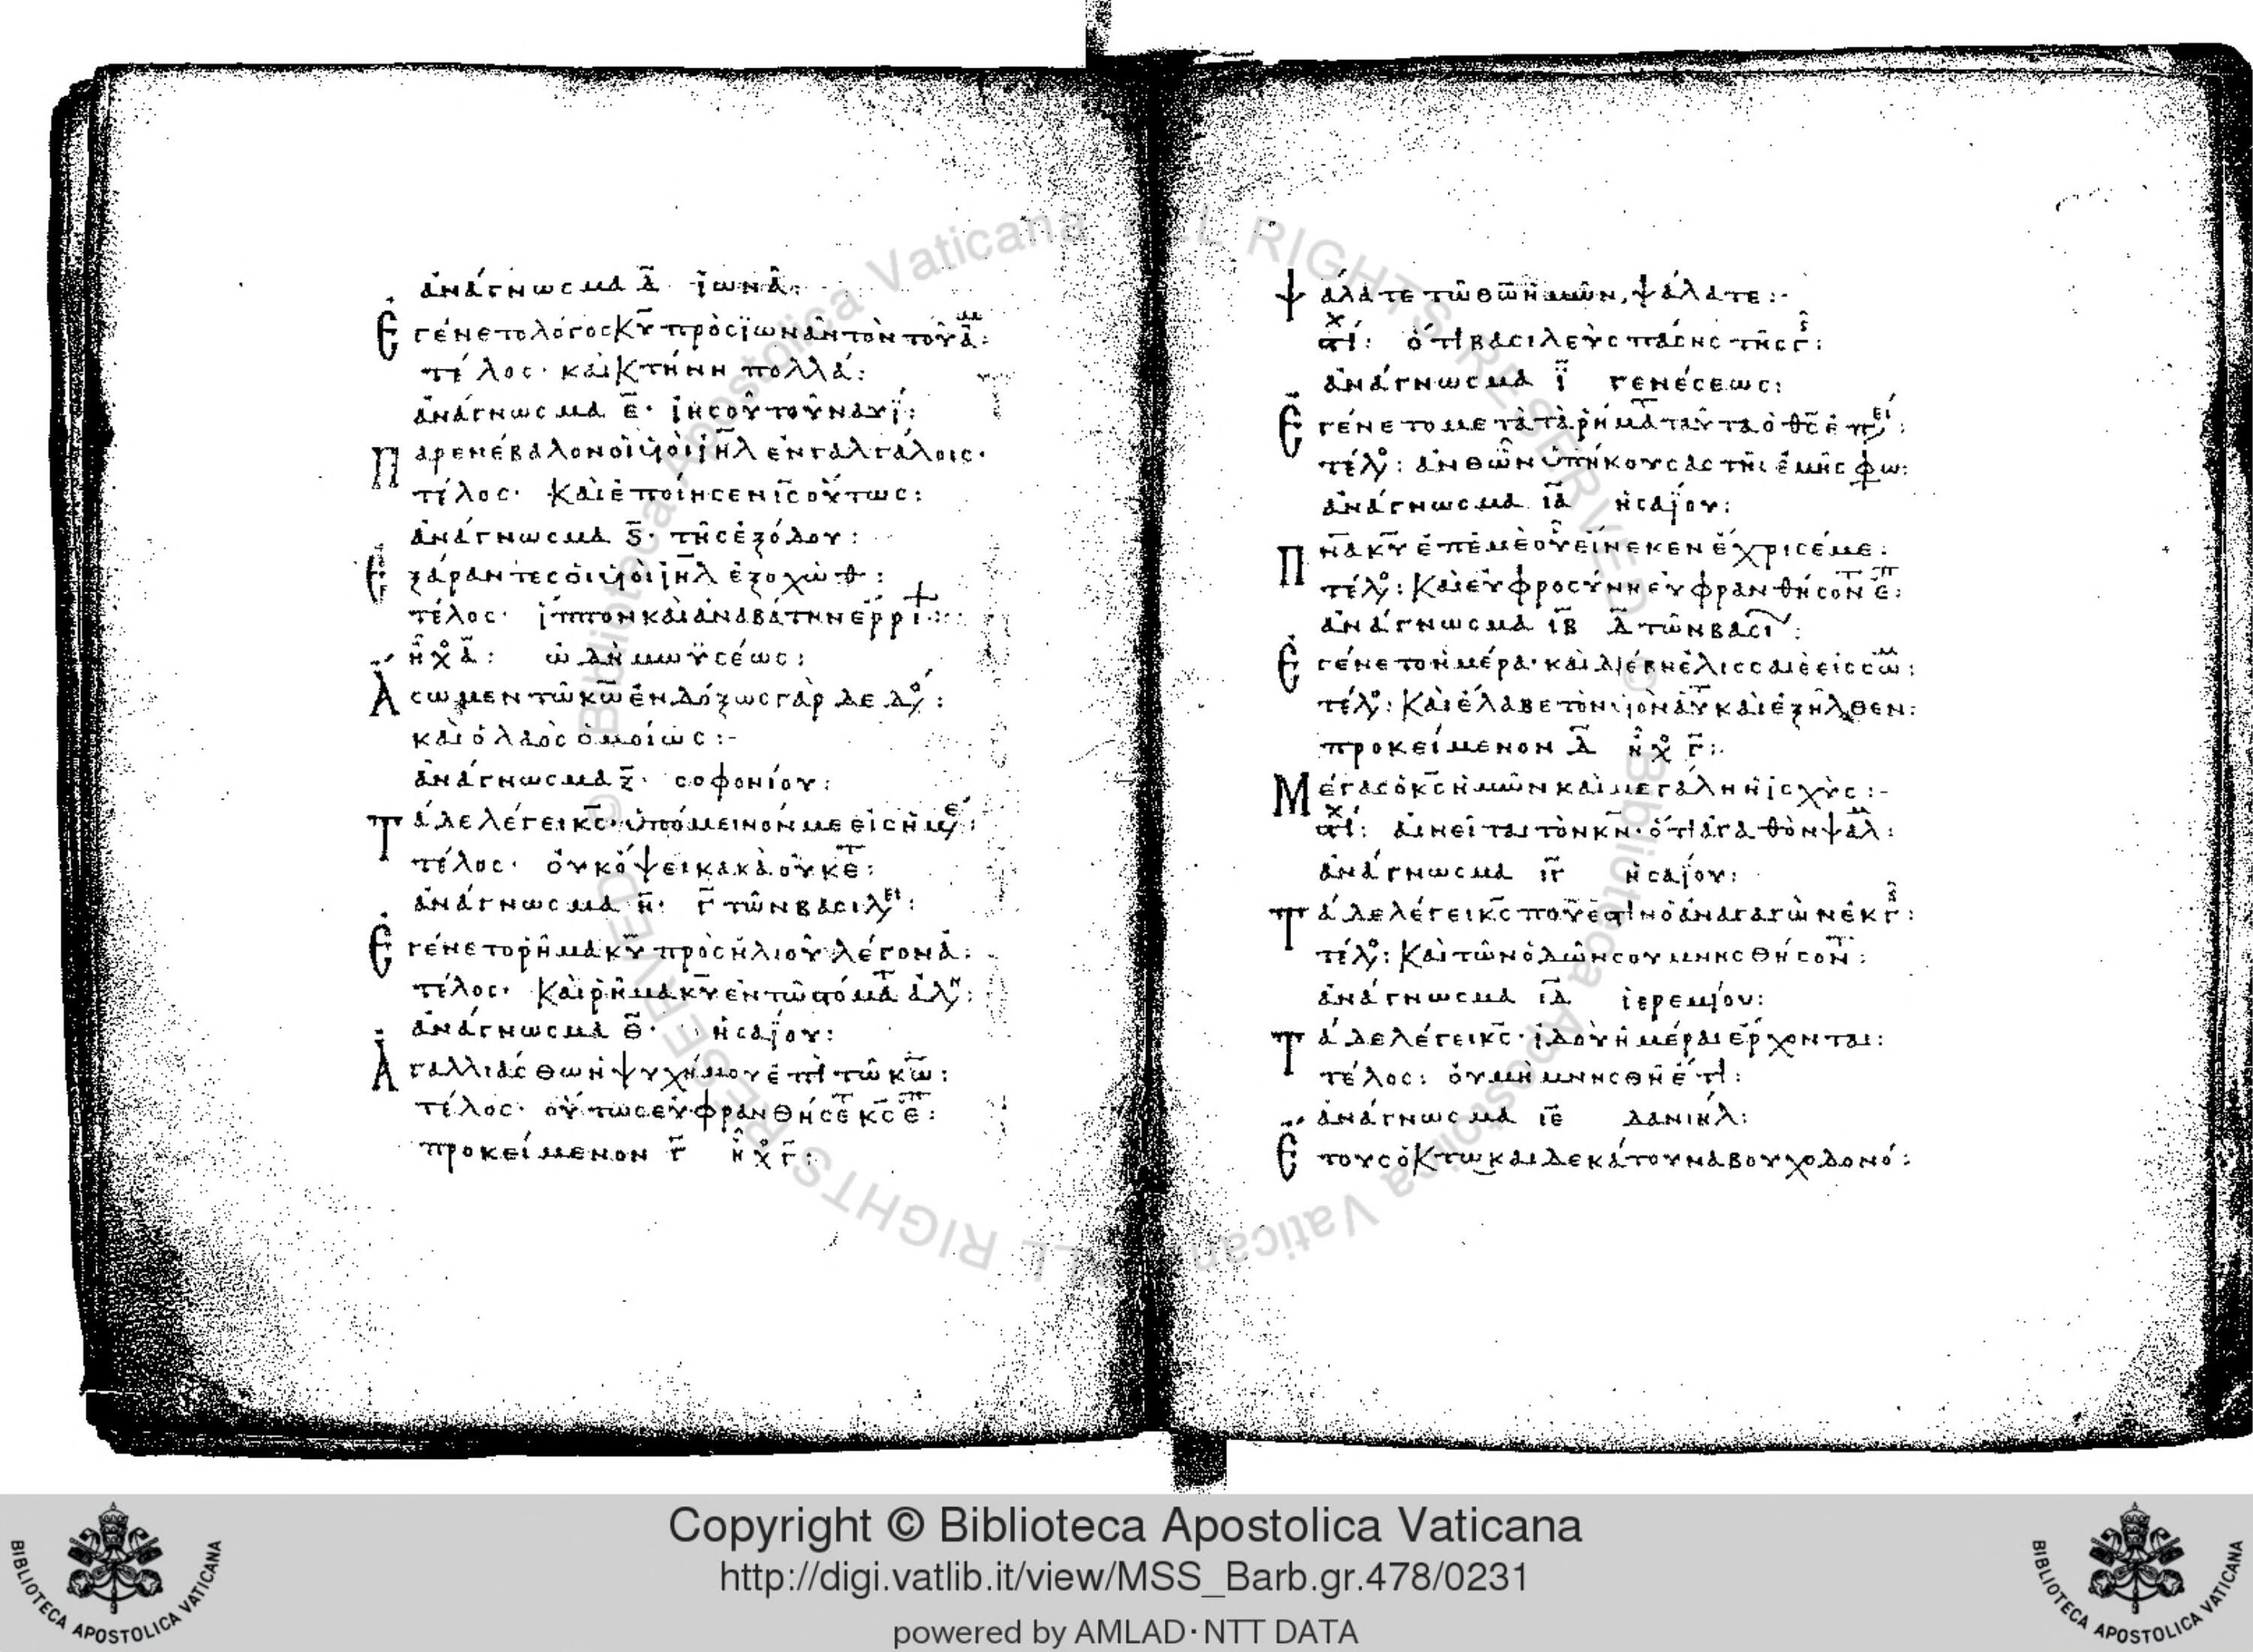 ἀνάγνωσμα δ̅ ἰωνᾶ:
Ἐγένετο λόγος κ̅υ̅ πρὸς ἰωνᾶν τὸν τοῦ ἀ̅μ:
τέλος· καὶ κτήνη πολλά:
ἀνάγνωσμα ε̅· ἰησοῦ τοῦ ναυῆ:
Παρενέβαλον οἱ υἱοὶ ι̅η̅λ̅ ἐν γαλγάλοις·
τέλος· καὶ ἐποίησεν ι̅ς̅ οὕτως:
ἀνάγνωσμα ς̅· τῆς ἐξόδου:
Ἐξάραντες οἱ υἱοὶ ι̅η̅λ̅ ἐξοχὼθ:
τέλος· ἵππον καὶ ἀναβάτην ἔρρι:
ἦχ δ̅: ὠδὴ μωϋσέως:
Ἄσωμεν τῶ κ̅ω̅ ἐνδόξως γὰρ δεδο:
καὶ ὁ λαὸς ὁμοίως:-
ἀνάγνωσμα ζ̅· σοφονίου:
Τάδε λέγει κ̅ς̅· ὑπόμεινόν με εἰς ἡμε:
τέλος· οὐκ όψει κακὰ οὐκέτ:
ἀνάγνωσμα η̅· γ̅ τῶν βασιλει:
Ἐγένετο ρῆμα κ̅υ̅ πρὸς ἠλιοῦ λέγον ἀ:
τέλος· καὶ ρῆμα κ̅υ̅ ἐν τῶ στόματ ἀλη:
ἀνάγνωσμα θ̅· ἡσαΐου:
Ἀγαλλιάσθω ἡ ψυχή μου ἐπὶ τῶ κ̅ω̅:
τέλος· οὕτως εὐφρανθήσετ κ̅ς̅ ἐπ:
προκείμενον γ̅ ἦχ γ̅:
Ψάλατε τῶ θ̅ω̅ ἡμῶν, ψάλατε:-
στίχ: ὅτι βασιλεὺς πάσης τῆς γῆς:
ἀνάγνωσμα ι̅ γενέσεως:
Ἐγένετο μετὰ τὰ ρήματ ταῦτα ὁ θ̅ς̅ ἐπει:
τέλο: ἀνθῶν ὑπήκουσας τῆς ἐμῆς φω:
ἀνάγνωσμα ι̅α̅ ἡσαΐου:
Π̅ν̅α̅ κ̅υ̅ ἐπ' ἐμὲ οὗ εἵνεκεν ἔχρισέ με:
τέλο: καὶ εὐφροσύνη εὐφρανθήσοντ ἐπ:
ἀνάγνωσμα ι̅β̅ δ̅ τῶν βασι:
Ἐγένετο ἡμέρα· καὶ διέβη ἐλισσαιὲ εἰς σωμ:
τέλο: καὶ έλαβε τὸν υἱὸν αὐτ καὶ ἐξῆλθεν:
προκείμενον δ̅ ἦχ γ̅:
Μέγας ὁ κ̅ς̅ ἡμῶν καὶ μεγάλη ἡ ἰσχὺς:-
στίχ: αἰνεῖται τὸν κ̅ν̅· ὅτι ἀγαθὸν ψαλμ:
ἀνάγνωσμα ι̅γ̅ ἡσαΐου:
Τάδε λέγει κ̅ς̅ ποῦ ἐστὶν ὁ ἀναγαγὼν ἐκ γῆς:
τέλο: καὶ τῶν ὁδῶν σου μνησθήσοντ:
ἀνάγνωσμα ι̅δ̅ ἱερεμίου:
Τάδε λέγει κ̅ς̅· ἰδοὺ ἡμέραι έρχονται:
τέλος: οὐ μὴ μνησθῆ έτι:
ἀνάγνωσμα ι̅ε̅ δανιήλ:
Ἔτους ὀκτωκαιδεκάτου ναβουχοδονό:
Copyright © Biblioteca Apostolica Vaticana
http://digi.vatlib.it/view/MSS_Barb.gr.478/0231
powered by AMLAD·NTT DATA
BIBLIOTECA APOSTOLICA VATICANA
BIBLIOTECA APOSTOLICA VATICANA